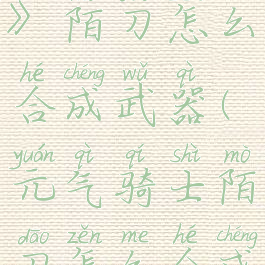 》陌刀怎么
hé chéng wǔ qì
合成武器(
yuán qì qí shì mò
元气骑士陌
dāo zěn me hé chéng
刀怎么合成